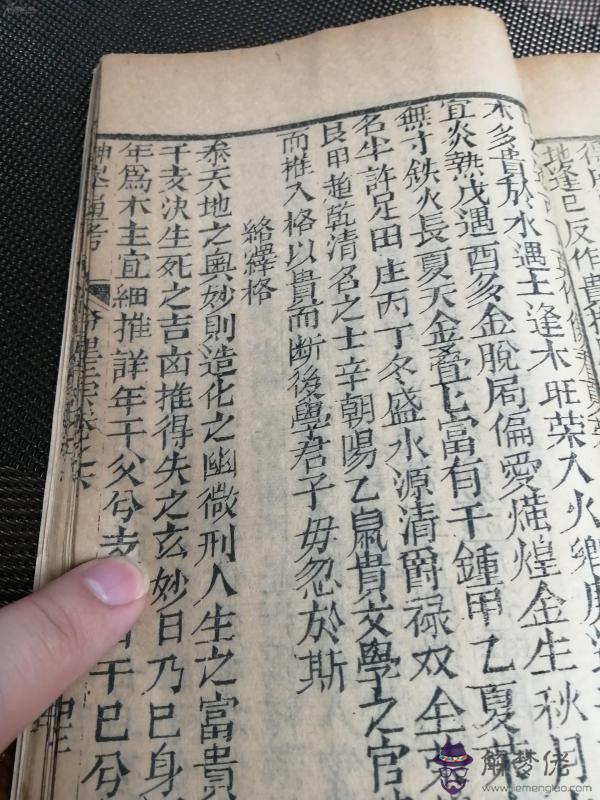 地逢巳反作貴
木多貴於水遇土逢木旺榮入火鄉
宜炎熱戊遇酉多金脫局偏愛熿煌金生秋月
無寸鉄火長夏天金疊疊富有千鍾甲乙夏
名半許足田庄丙丁冬盛水源清爵祿双全
艮甲趨乾清名之士辛朝陽乙鼠貴文學之官
而推入格以貴而断後學君子毋忽於斯
絡繹格
叅天地之奧妙則造化之幽微刑人生之富貴
干支決生死之吉凶推得失之玄妙日乃巳身
年爲木主宜細推詳年干父兮支 干巳兮
解梦佬
www.jiemenglao.com